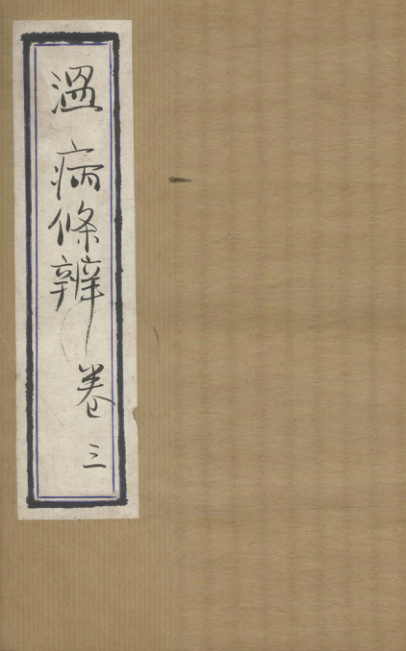 溫病條辨 卷三